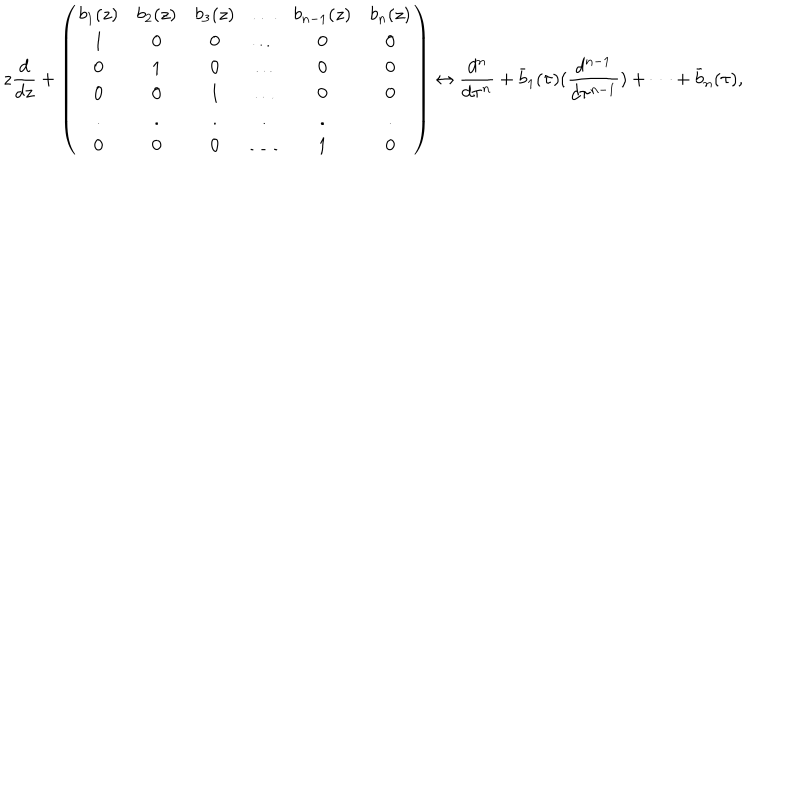 $z\frac{d}{dz}+\begin{pmatrix} b_1(z) & b_2(z) & b_3(z) & \dots & b_{n-1}(z) & b_n(z) \\ 1 & 0 & 0 & \dots & 0 & 0 \\ 0 & 1 & 0 & \dots & 0 & 0 \\ 0 & 0 & 1 & \dots & 0 & 0 \\ . & . & . & . & . & . \\ 0 & 0 & 0 & \dots & 1 & 0 \end{pmatrix} \leftrightarrow \frac{d^n}{d\tau^n}+\bar{b}_1(\tau)(\frac{d^{n-1}}{d\tau^{n-1}})+\cdots+\bar{b}_n(\tau),$